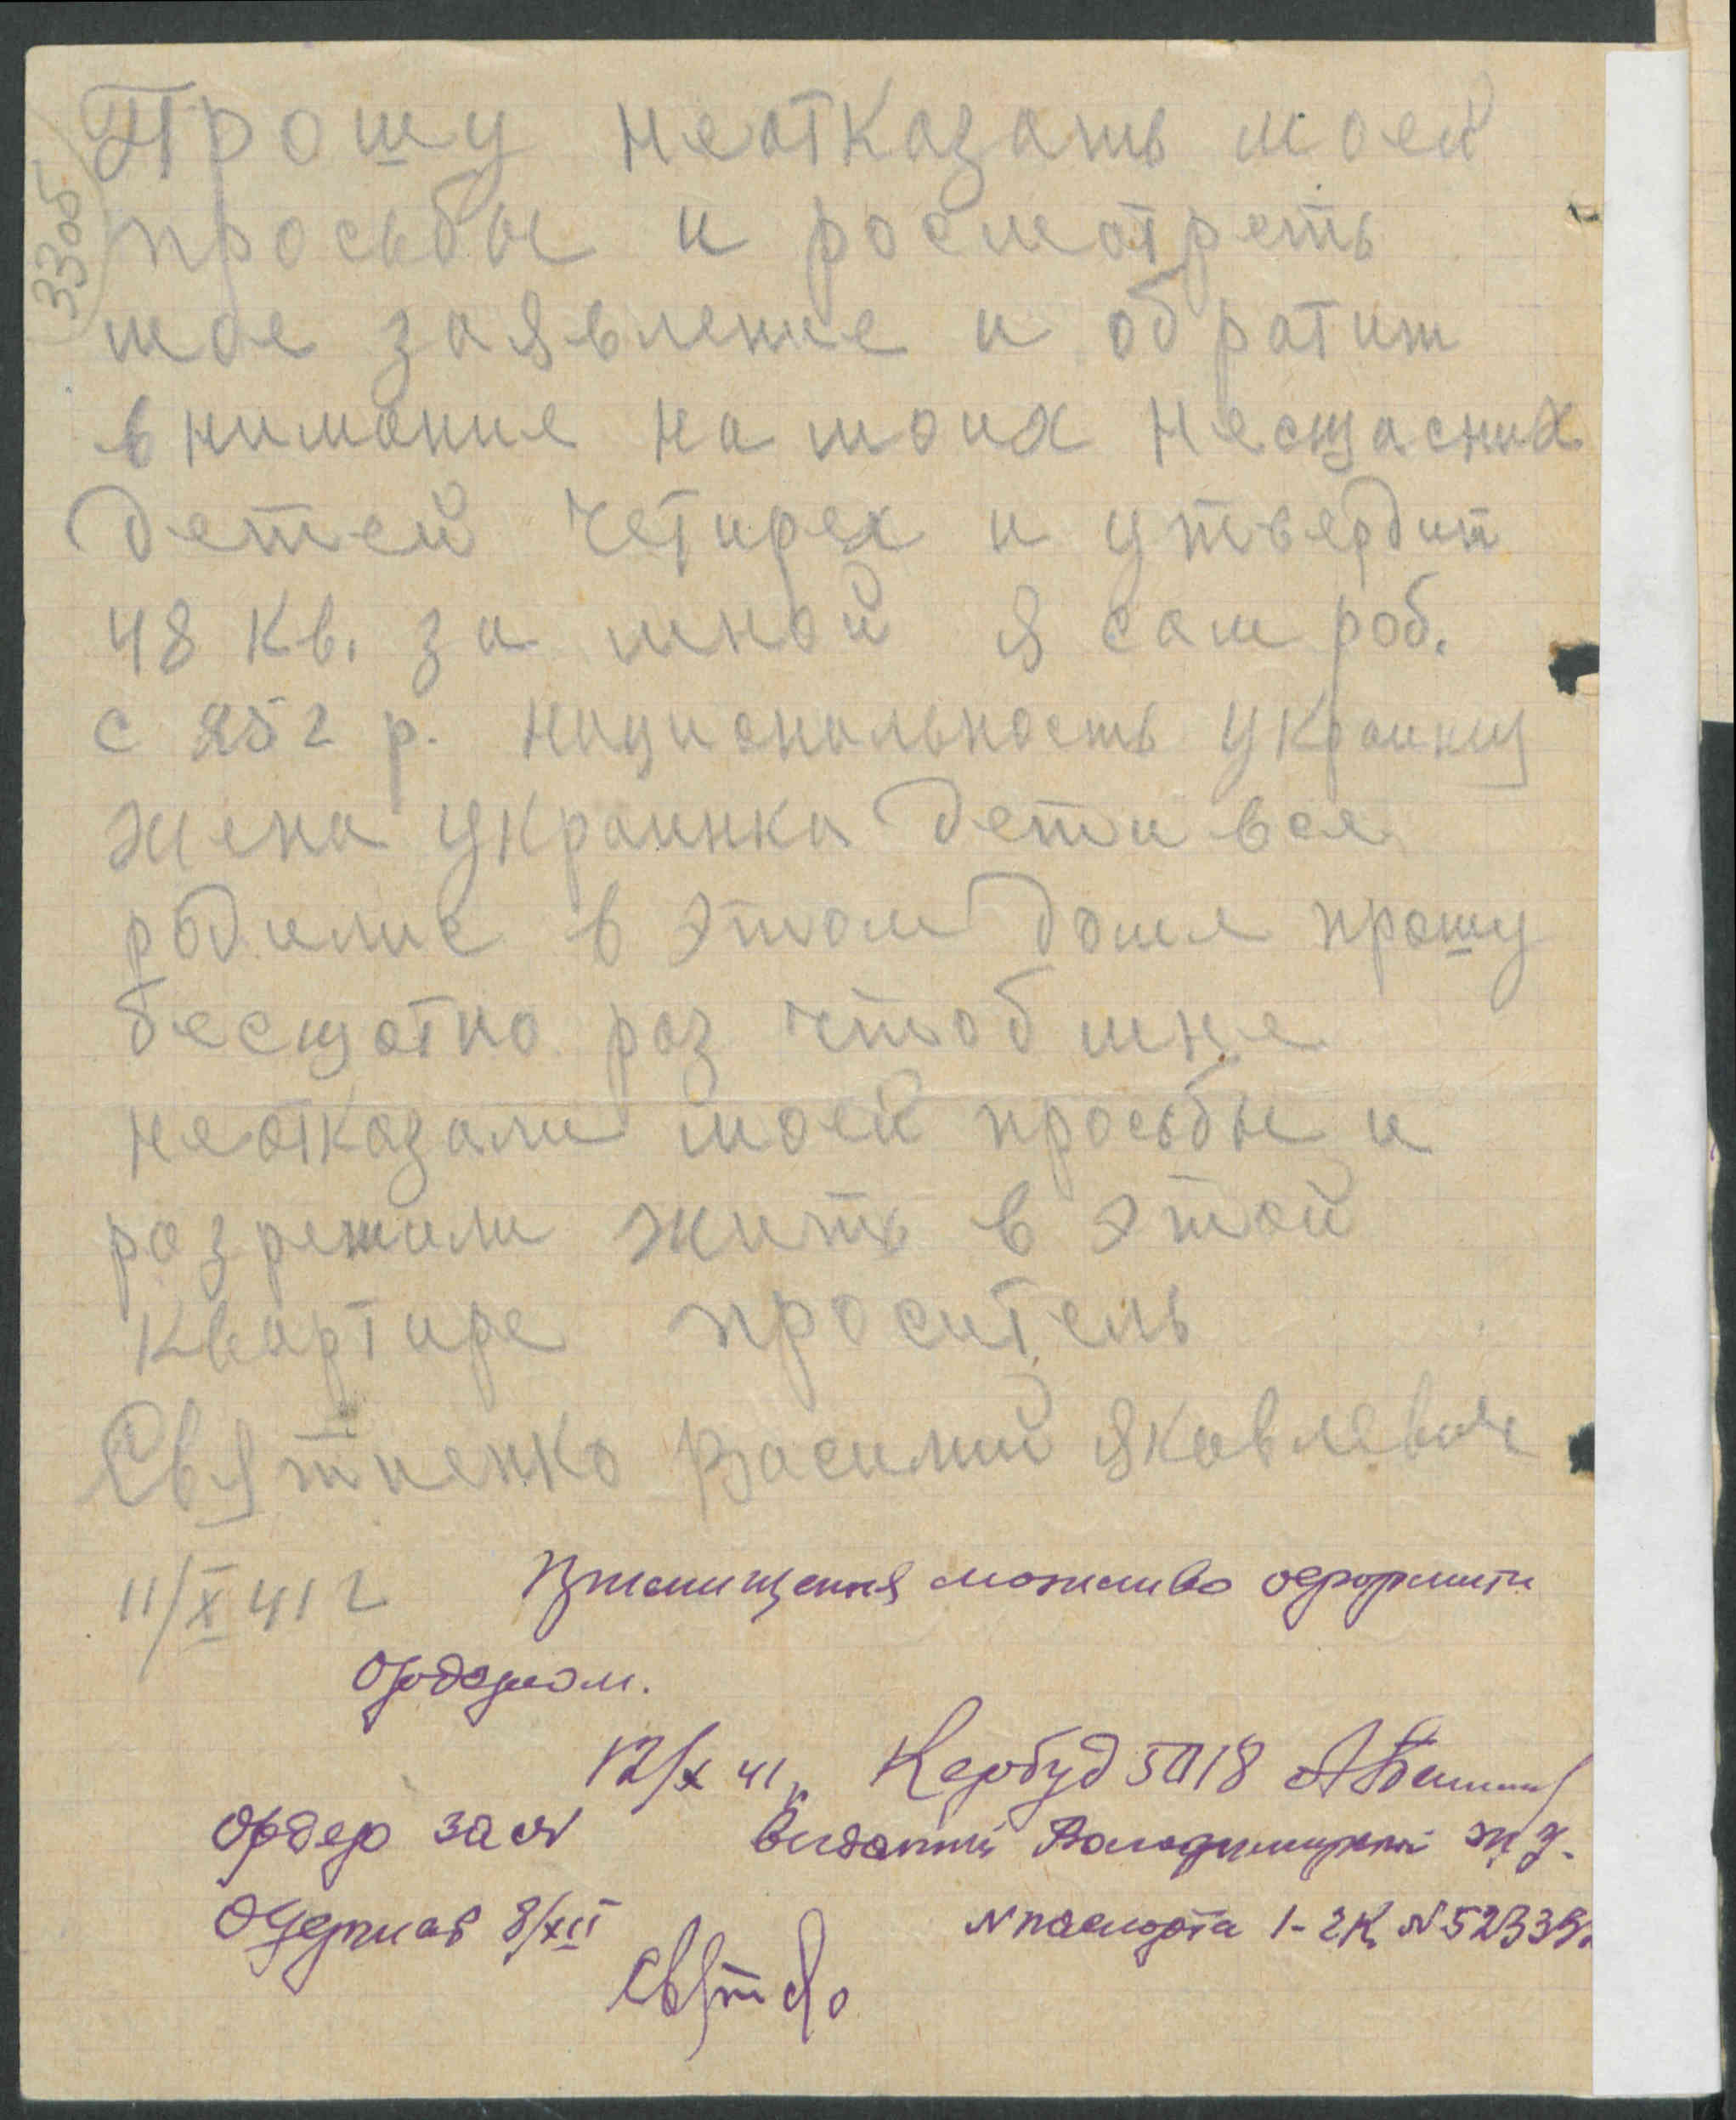 3305
Прошу неотказать моей
просьбы и росмотреть
мое заявление и обратит
внимание на моих несщасних
детей четирех и утвердит
48 кв. за мной я сам роб.
с 252 р. национальность украинц
жена украинка дети все
родилис в этом доме прошу
бесщотно раз чтоб мне
неотказали моей просьбы и
розрешили жить в этой
квартире проситель
Святненко Василий Яковлевич
11/X 41 г Приміщення можливо оформити
ордером.
12/X 41 р. Кербуд 5018
Ордер за №
Виданий ж.у.
Одержав 8/XII
№ паспорта 1-2К № 52339.